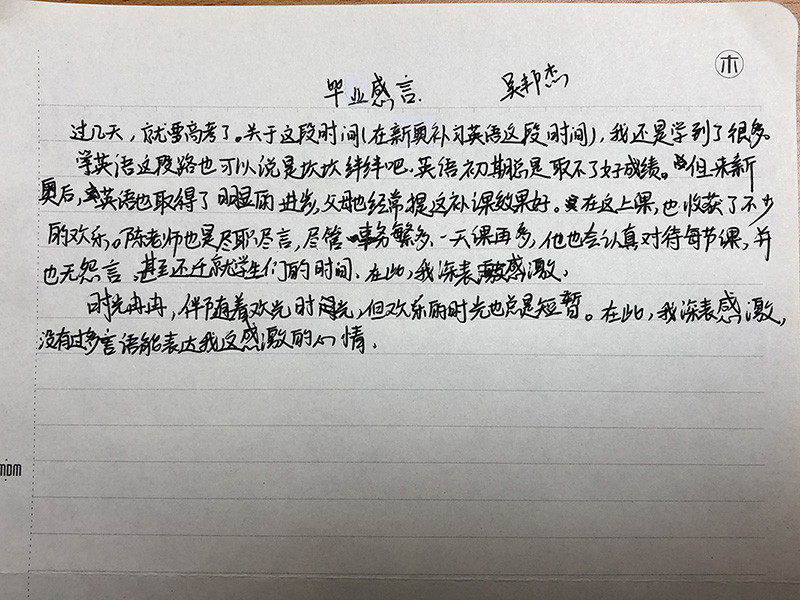 木
毕业感言. 吴邦杰
过几天，就要高考了。关于这段时间(在新奥补习英语这段时间)，我还是学到了很多。
学英语这段路也可以说是坎坎绊绊吧.英语初期总是取不了好成绩。但来新
奥后，英语也取得了明显的进步,父母也经常提这补课效果好。在这上课，也收获了不少
的欢乐。陈老师也是尽职尽言，尽管事务繁多.一天课再多，他也会认真对待每节课，并
也无怨言.甚至还迁就学生们的时间.在此，我深表感激.
时光冉冉，伴随着欢光时光，但欢乐的时光也总是短暂。在此，我深表感激，
没有过多言语能表达我这感激的心情.
MDM